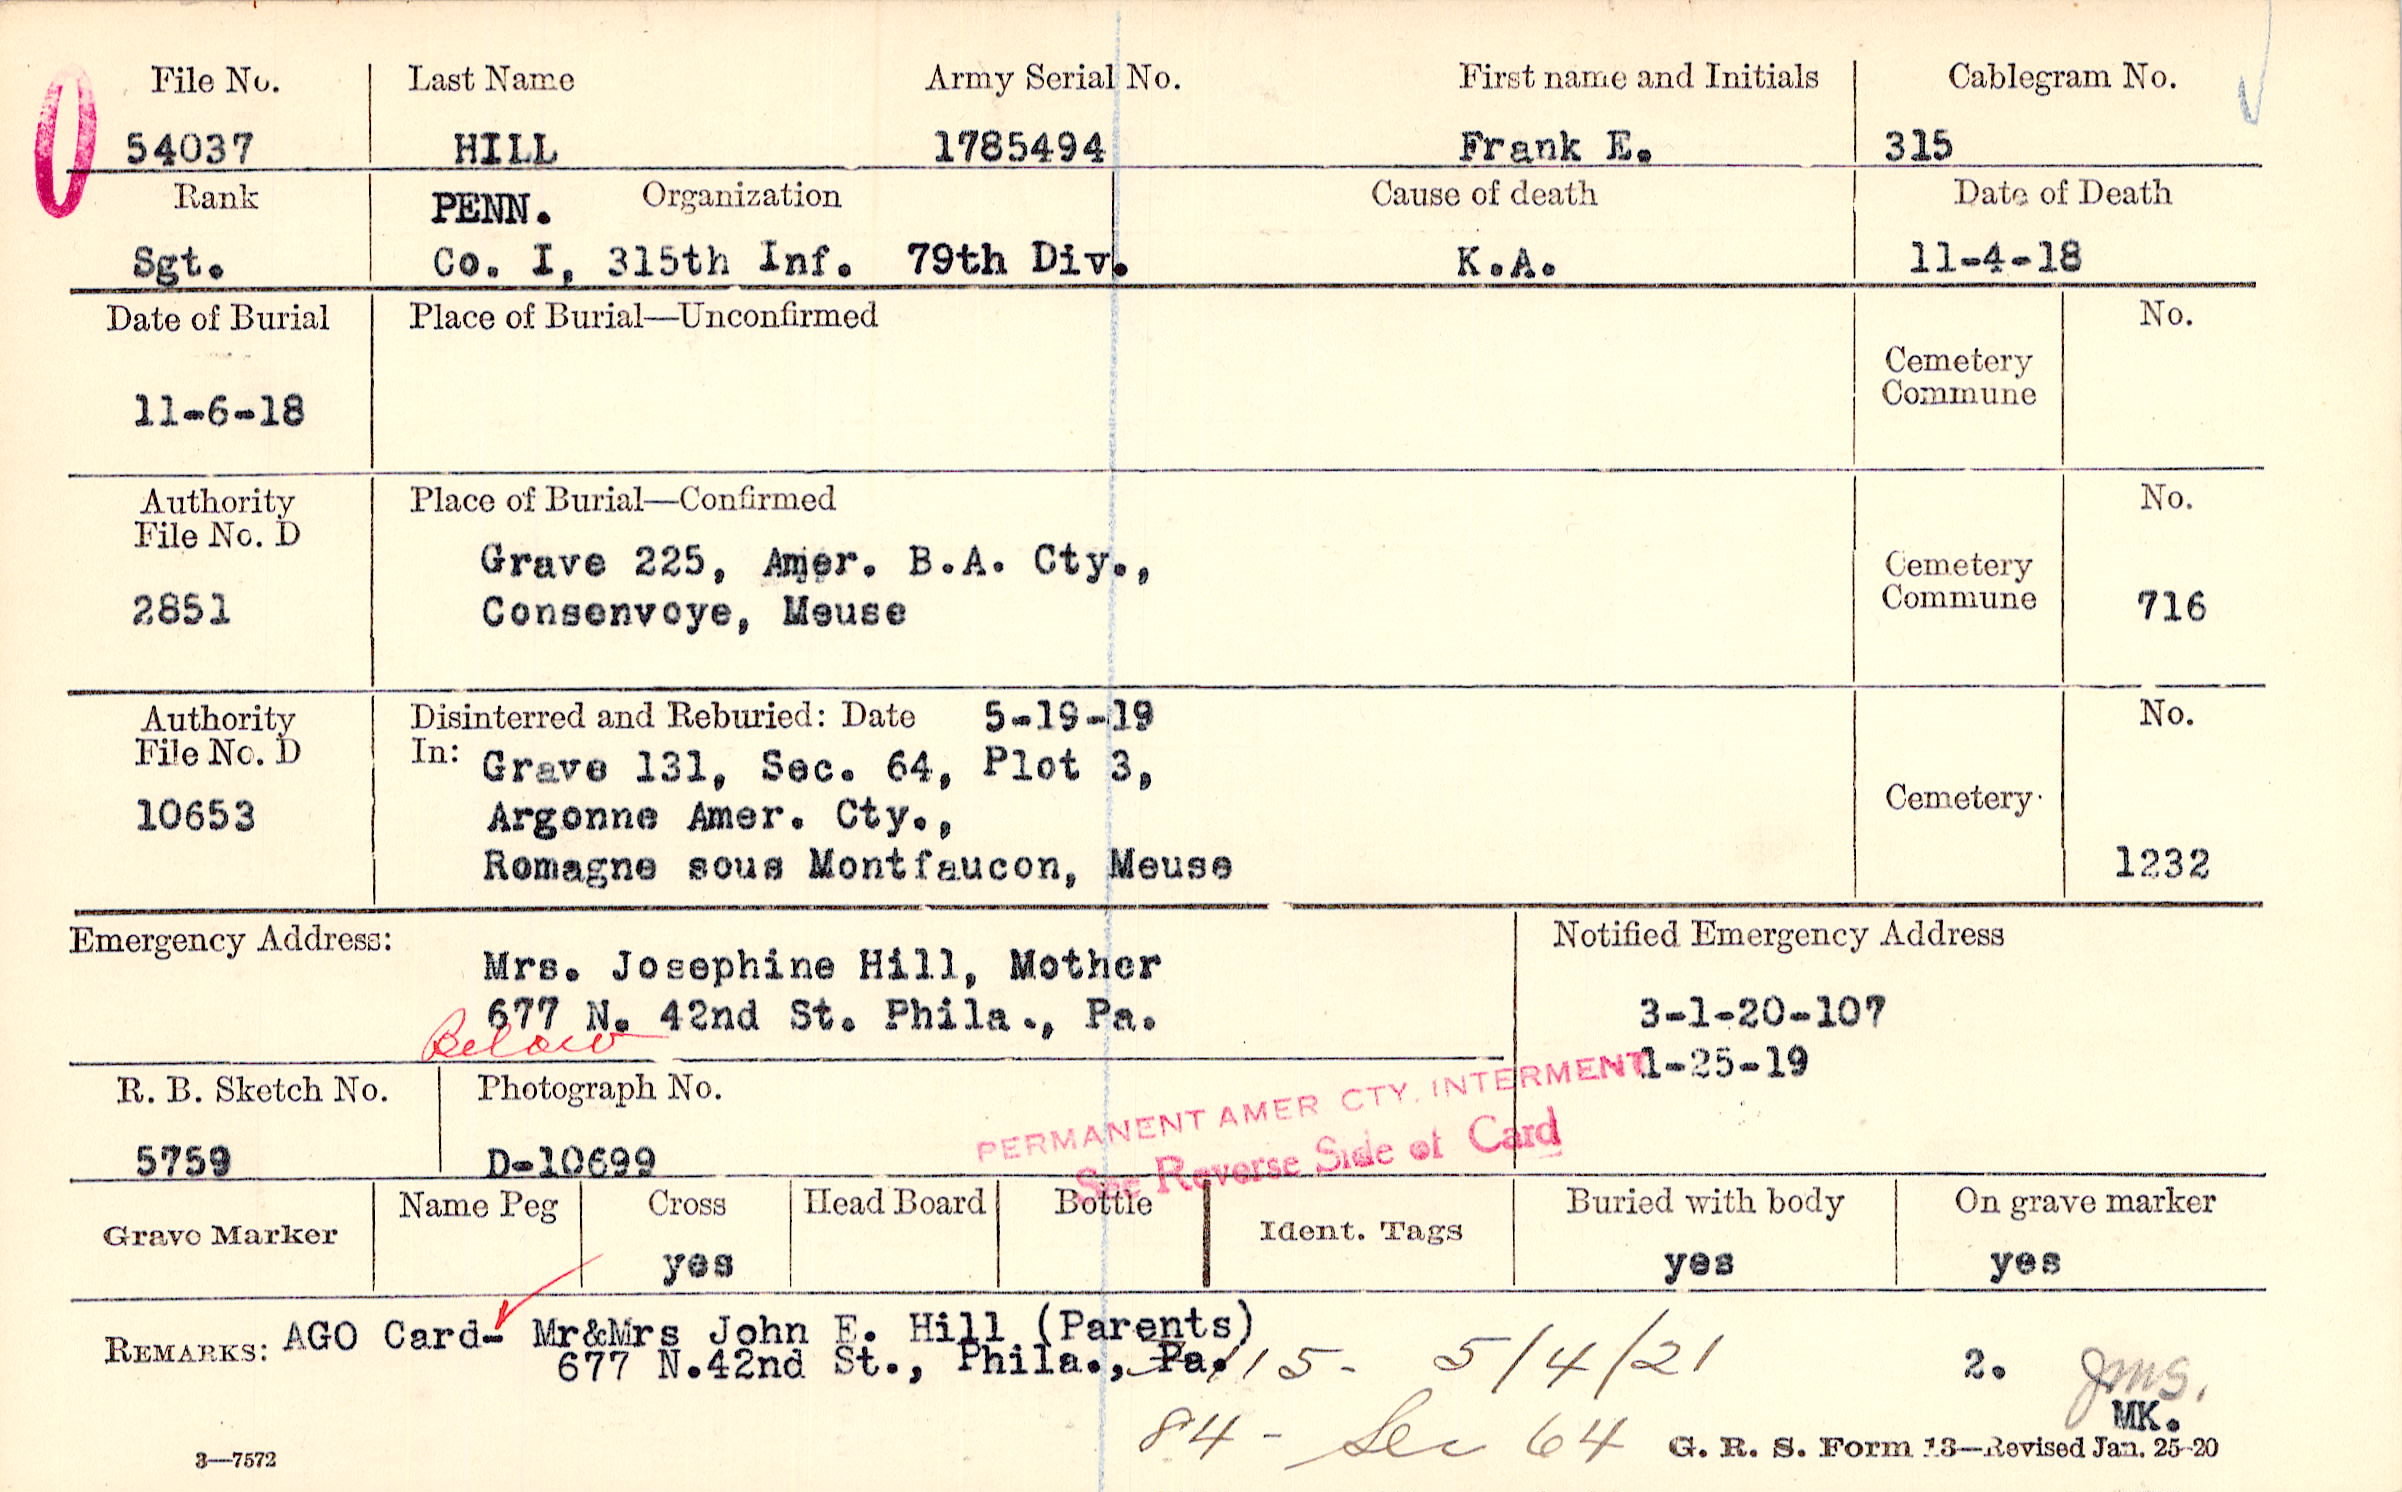 File No. Last Name Army Serial No. First name and Initials Cablegram No.
54037 HILL 1785494 Frank E. 315
Rank PENN. Organization Cause of death Date of Death
Sgt. Co. I, 315th Inf. 79th Div. K.A. 11-4-18
Date of Burial Place of Burial—Unconfirmed No.
Cemetery
Commune
11-6-18
Authority Place of Burial—Confirmed No.
File No. D
Grave 225, Amer. B.A. Cty., Cemetery
2851 Consenvoye, Meuse Commune 716
Authority Disinterred and Reburied: Date 5-19-19 No.
File No. D In: Grave 131, Sec. 64, Plot 3,
10653 Argonne Amer. Cty., Cemetery
Romagne sous Montfaucon, Meuse 1232
Emergency Address: Notified Emergency Address
Mrs. Josephine Hill, Mother
677 N. 42nd St. Phila., Pa. 3-1-20-107
Below
1-25-19
R. B. Sketch No. Photograph No.
PERMANENT AMER CTY. INTERMENT
See Reverse Side of Card
5759 D-10699
Grave Marker Name Peg Cross Head Board Bottle Ident. Tags Buried with body On grave marker
yes yes yes
REMARKS: AGO Card- Mr&Mrs John E. Hill (Parents)
677 N.42nd St., Phila., Pa. 5/4/21 2. JMS.
84 - Sec 64 MK.
3—7572 G. R. S. Form 13—Revised Jan. 25-20